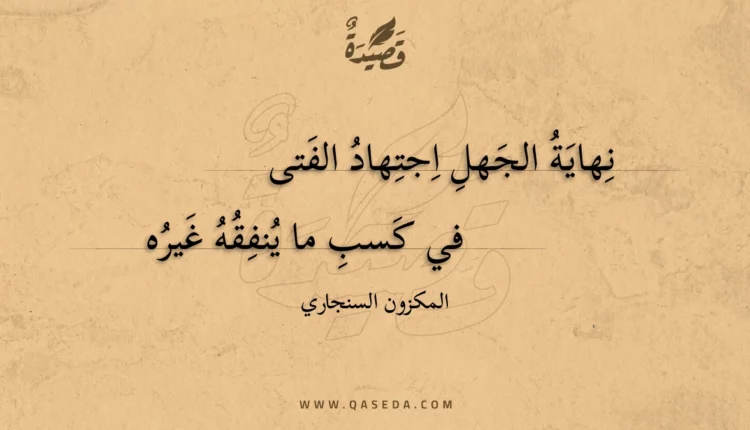 قَصِيدَةٌ
نِهايَةُ الجَهلِ اِجتِهادُ الفَتى
في كَسبِ ما يُنفِقُهُ غَيرُه
المكزون السنجاري
WWW.QASEDA.COM